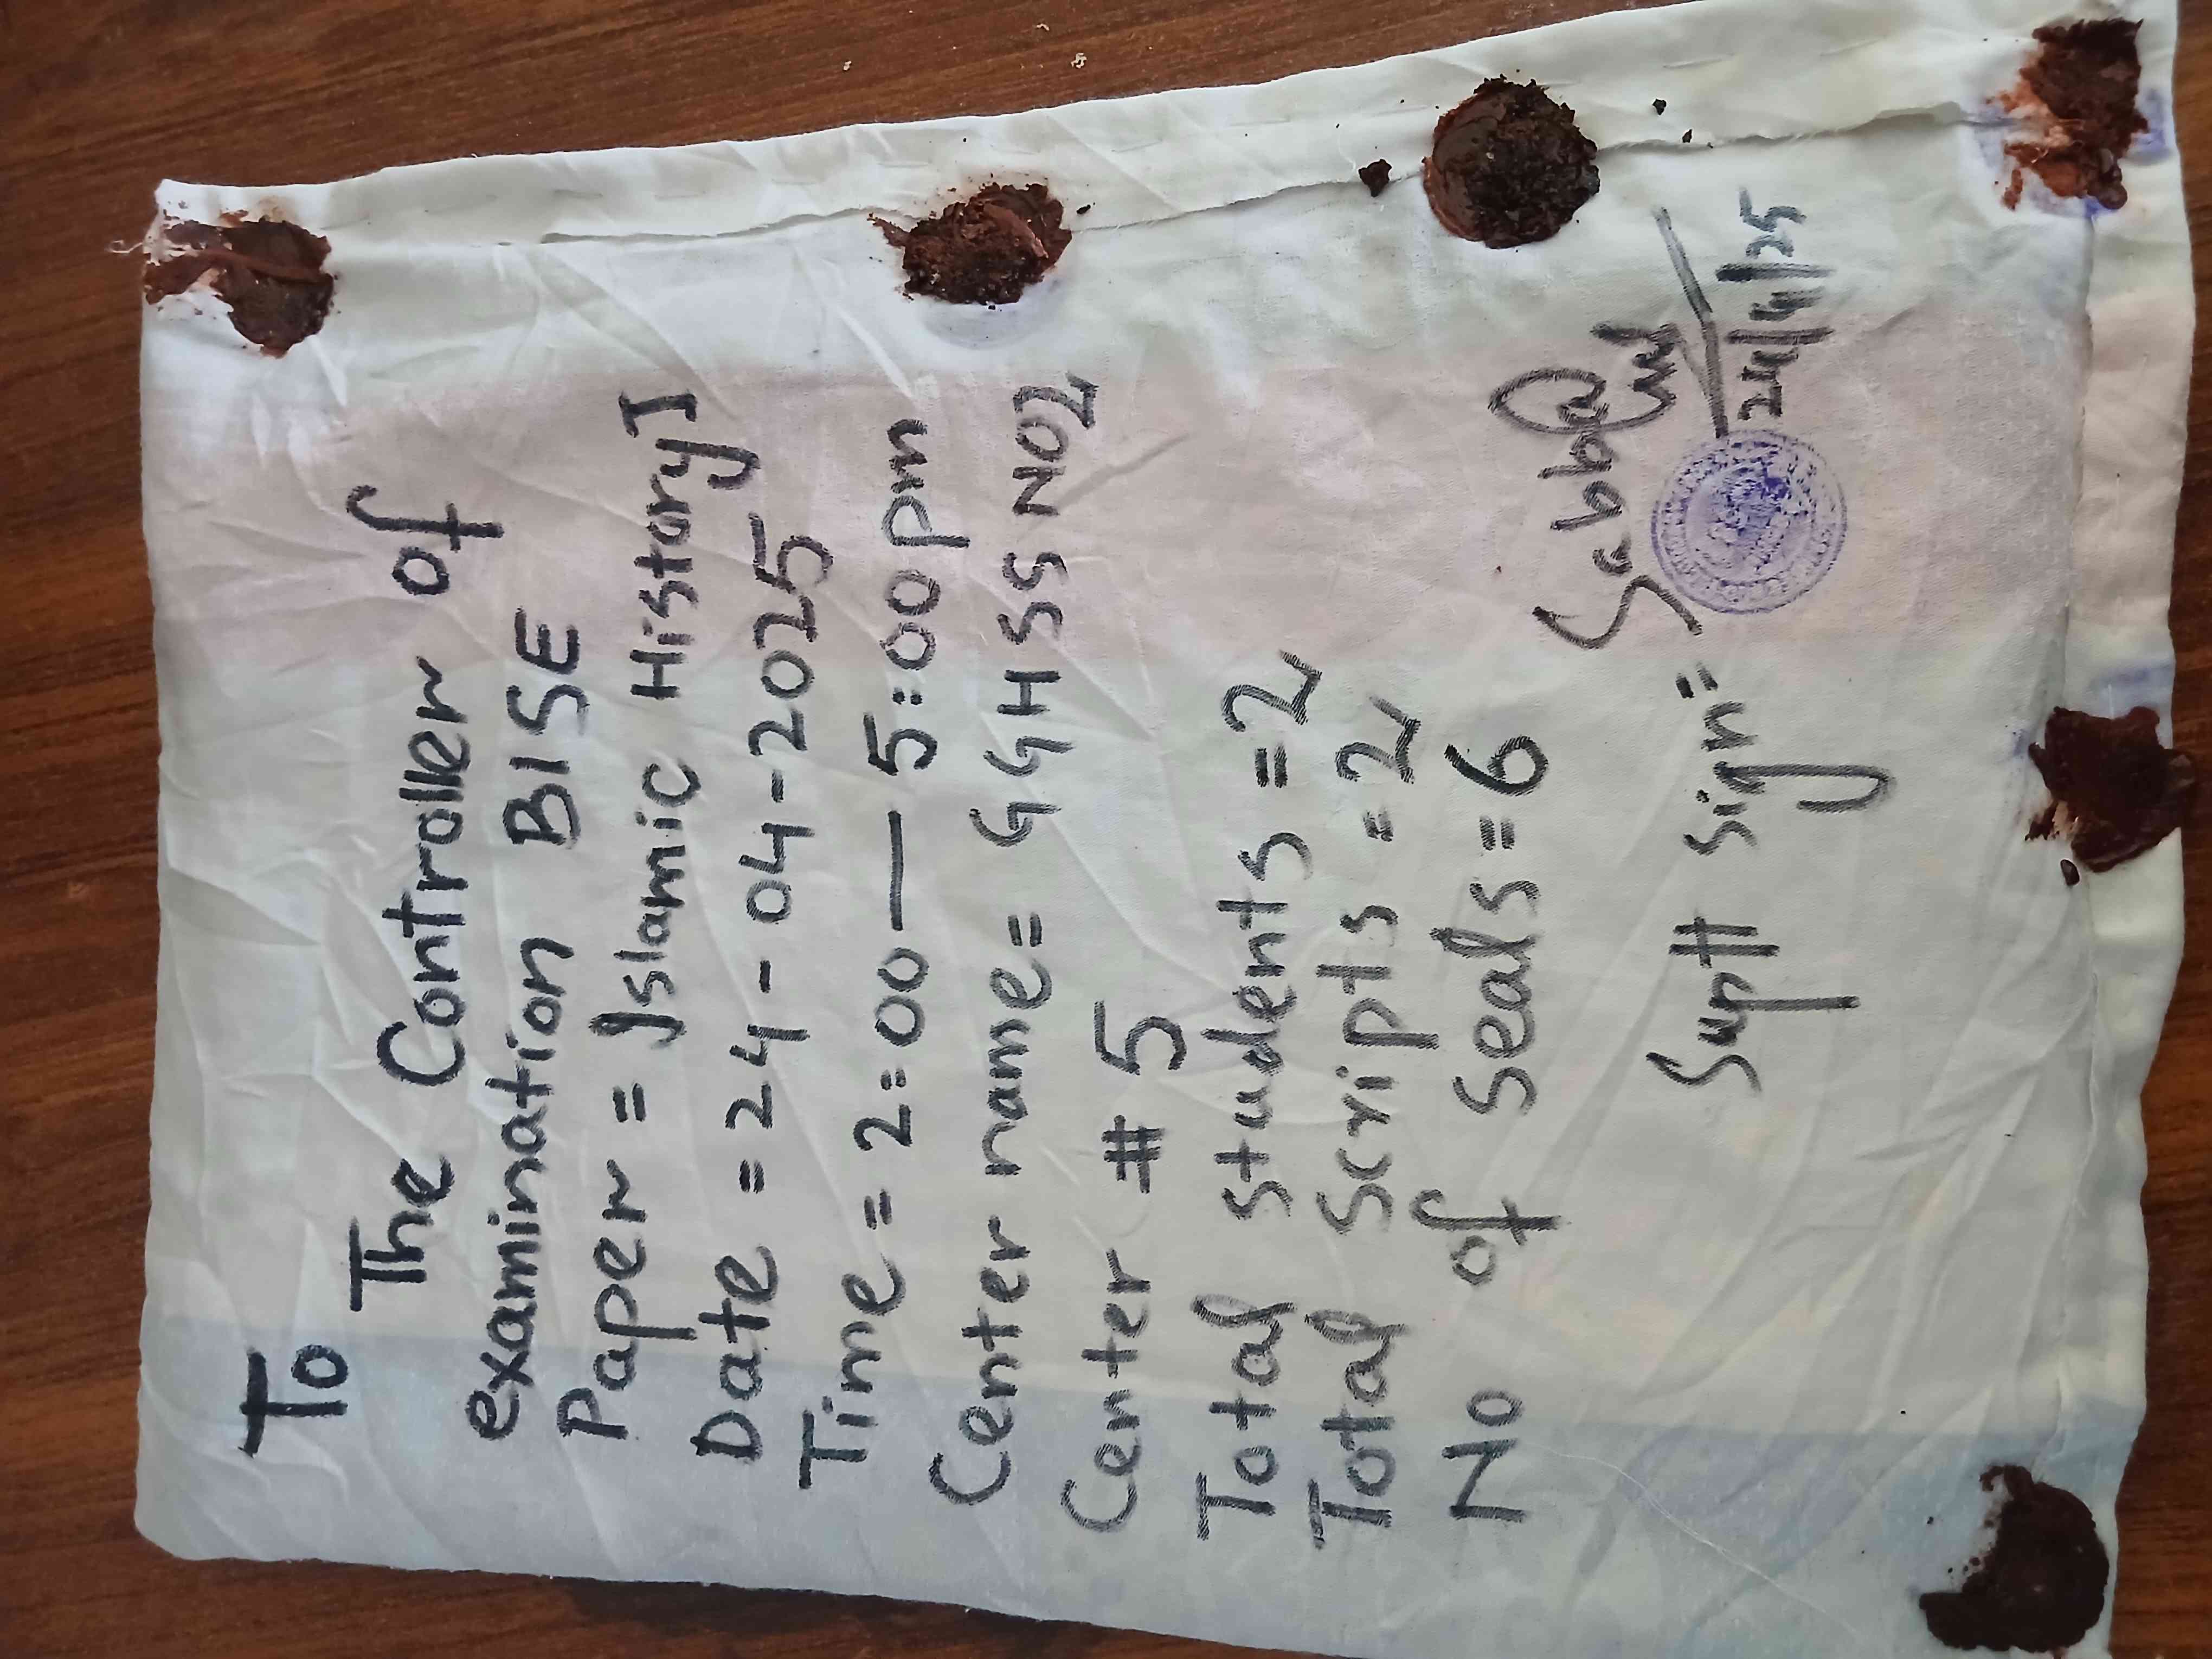 To
The Controller of
examination BISE
Paper = Islamic History I
Date = 24-04-2025
Time = 2:00 — 5:00 pm
Center name = GGHSS NO2
Center # 5
Total students = 2
Total scripts = 2
No of seals = 6
Suptt sign =
24/4/25